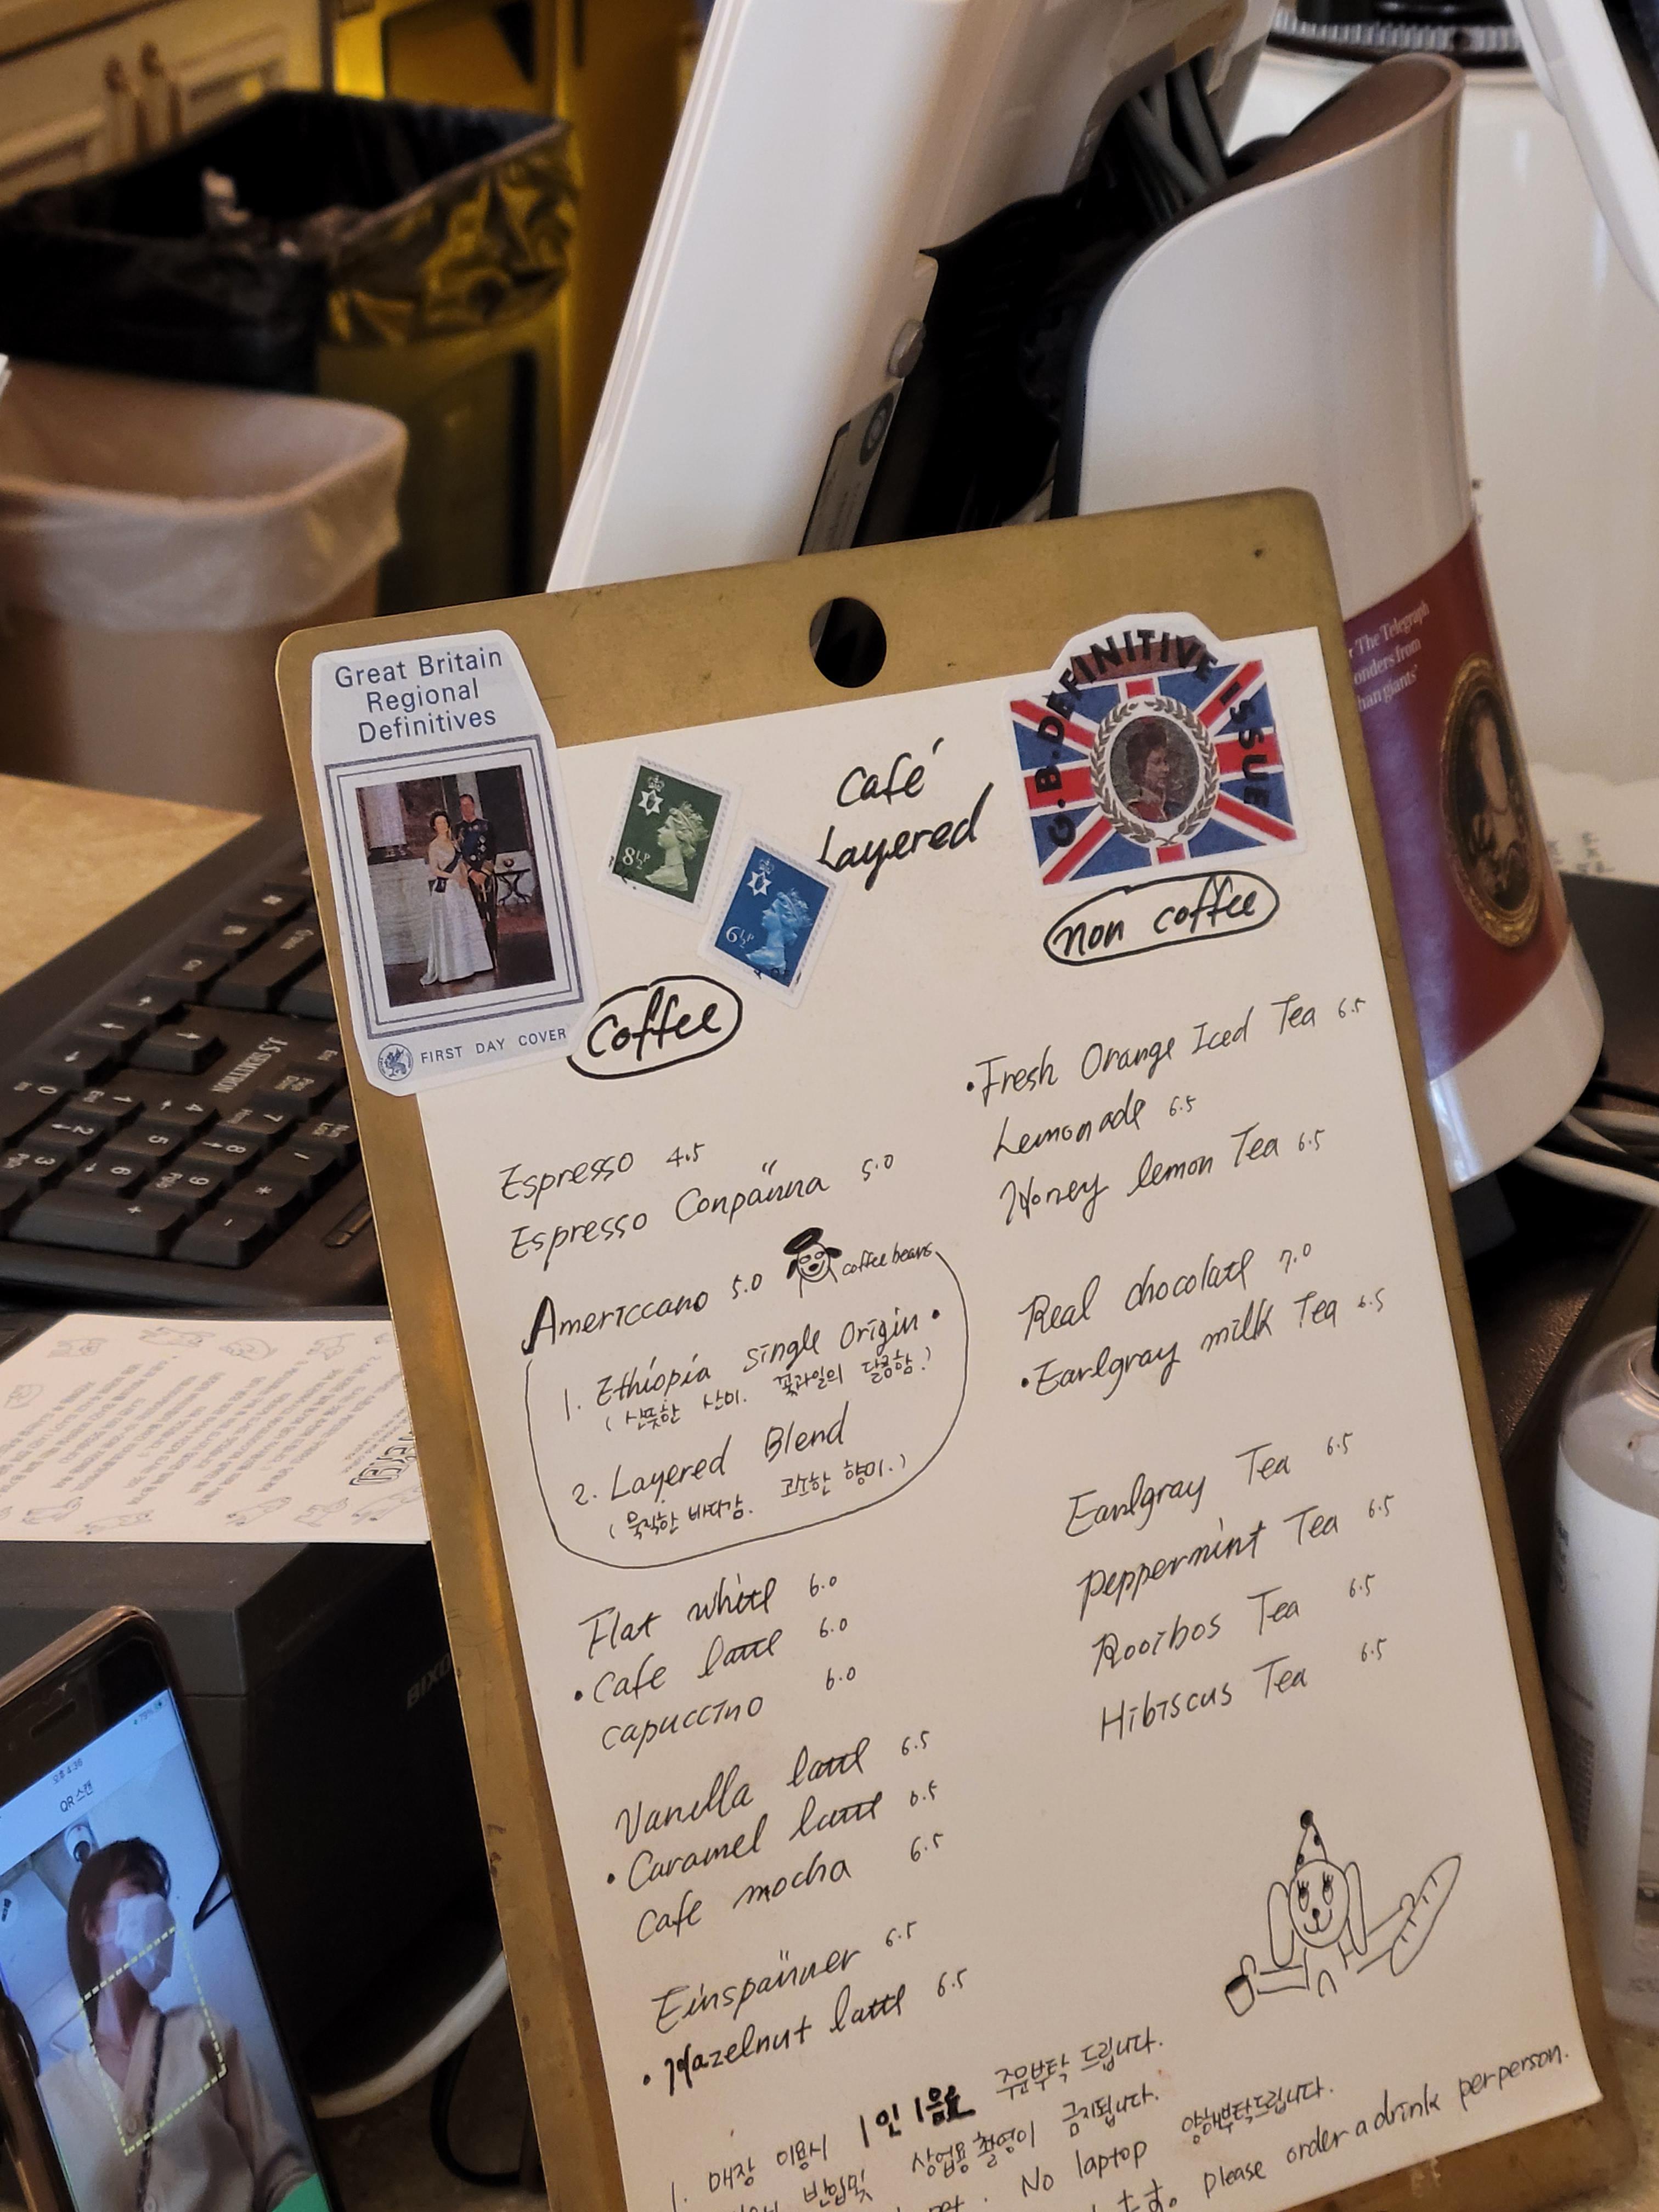 Great Britain
Regional
Definitives
FIRST DAY COVER
8½P
6½P
Café
Layered
G.B. DEFINITIVE ISSUE
r The Telegraph
onders from
han giants'
coffee
Espresso 4.5
Espresso Conpänna 5.0
Americcano 5.0
coffee beans
1. Ethiopia single Origin •
( 산뜻한 산미. 꽃과일의 달콤함.)
2. Layered Blend
( 묵직한 바디감. 고소한 향미.)
Flat white 6.0
• Cafe latte 6.0
capuccino 6.0
Vanilla latte 6.5
• Caramel latte 6.5
Cafe mocha 6.5
Einspänner 6.5
• Hazelnut latte 6.5
non coffee
• Fresh Orange Iced Tea 6.5
Lemonade 6.5
Honey lemon Tea 6.5
Real chocolate 7.0
• Earlgray milk Tea 6.5
Earlgray Tea 6.5
Peppermint Tea 6.5
Rooibos Tea 6.5
Hibiscus Tea 6.5
1. 매장 이용시 1인 1음료 주문부탁 드립니다.
반입및 상업용 촬영이 금지됩니다.
No laptop 양해부탁드립니다.
please order a drink per person.
SKEMITTON ST
BIXO
오후 4:36
QR 스캔